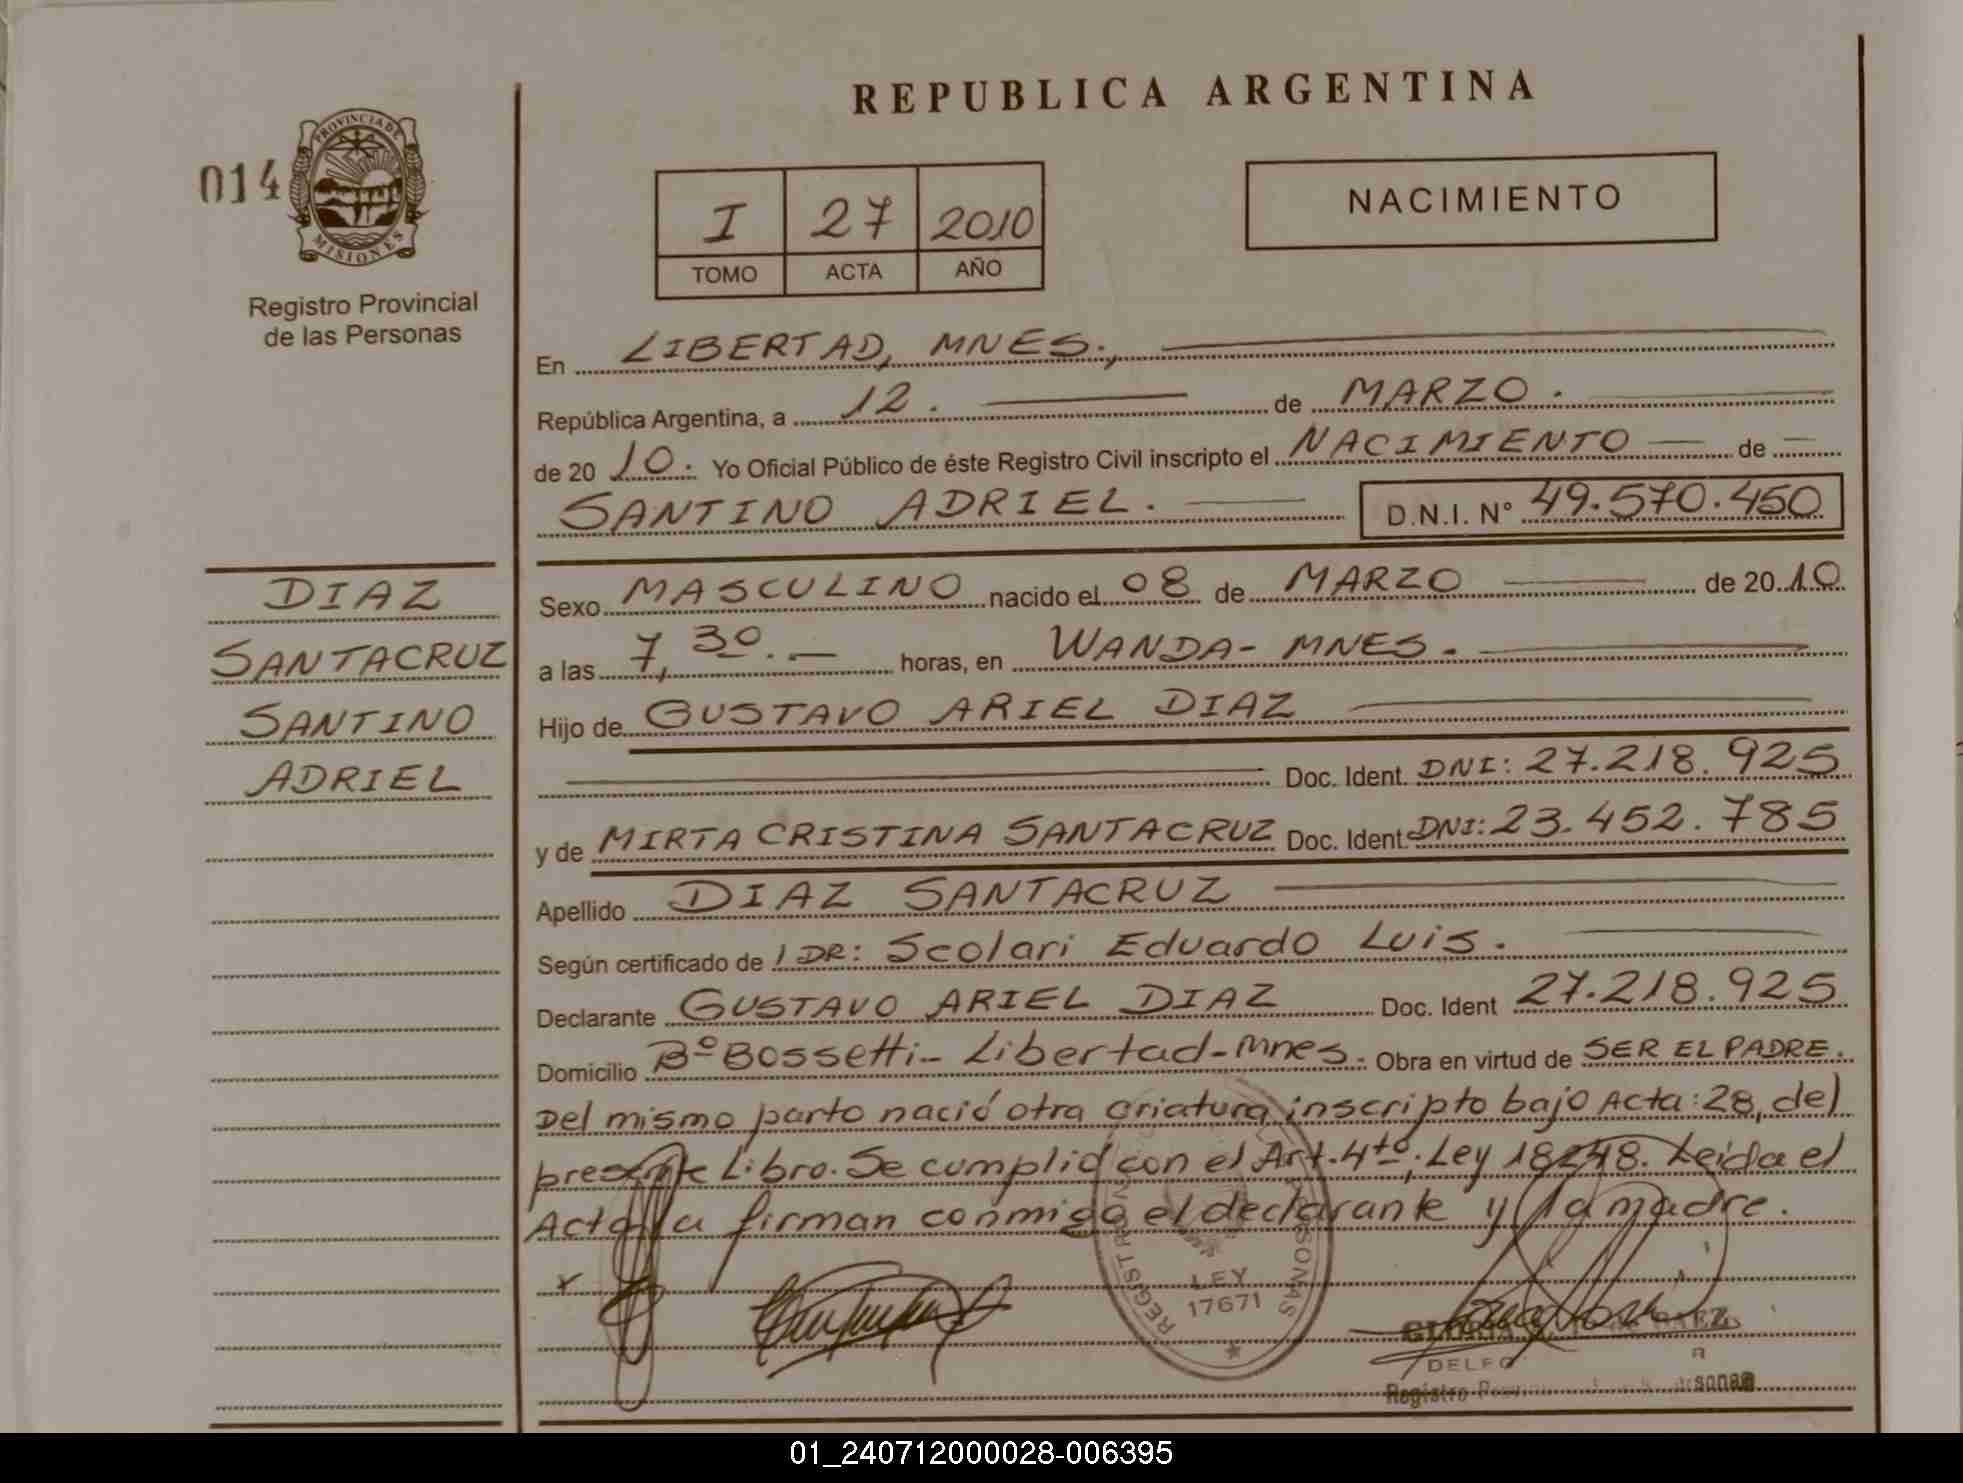 REPUBLICA ARGENTINA
014
PROVINCIA DE
MISIONES
Registro Provincial
de las Personas
I 27 2010
TOMO ACTA AÑO
NACIMIENTO
En LIBERTAD, MNES.,
República Argentina, a 12. de MARZO.
de 20 10. Yo Oficial Público de éste Registro Civil inscripto el NACIMIENTO de
SANTINO ADRIEL. D.N.I. N° 49.570.450
DIAZ
SANTACRUZ
SANTINO
ADRIEL
Sexo MASCULINO nacido el 08 de MARZO de 20 10
a las 7,30.- horas, en WANDA- MNES.
Hijo de GUSTAVO ARIEL DIAZ
Doc. Ident. DNI: 27.218.925
y de MIRTA CRISTINA SANTACRUZ Doc. Ident. DNI: 23.452.785
Apellido DIAZ SANTACRUZ
Según certificado de / DR: Scolari Eduardo Luis.
Declarante GUSTAVO ARIEL DIAZ Doc. Ident 27.218.925
Domicilio Bº Bossetti- Libertad-Mnes. Obra en virtud de SER EL PADRE.
Del mismo parto nació otra criatura, inscripto bajo Acta: 28, del
presente Libro. Se cumplió con el Art. 4to, Ley 18248. Leída el
Acta la firman conmigo el declarante y la madre.
LEY
17671
DELEG
Registro
01_240712000028-006395